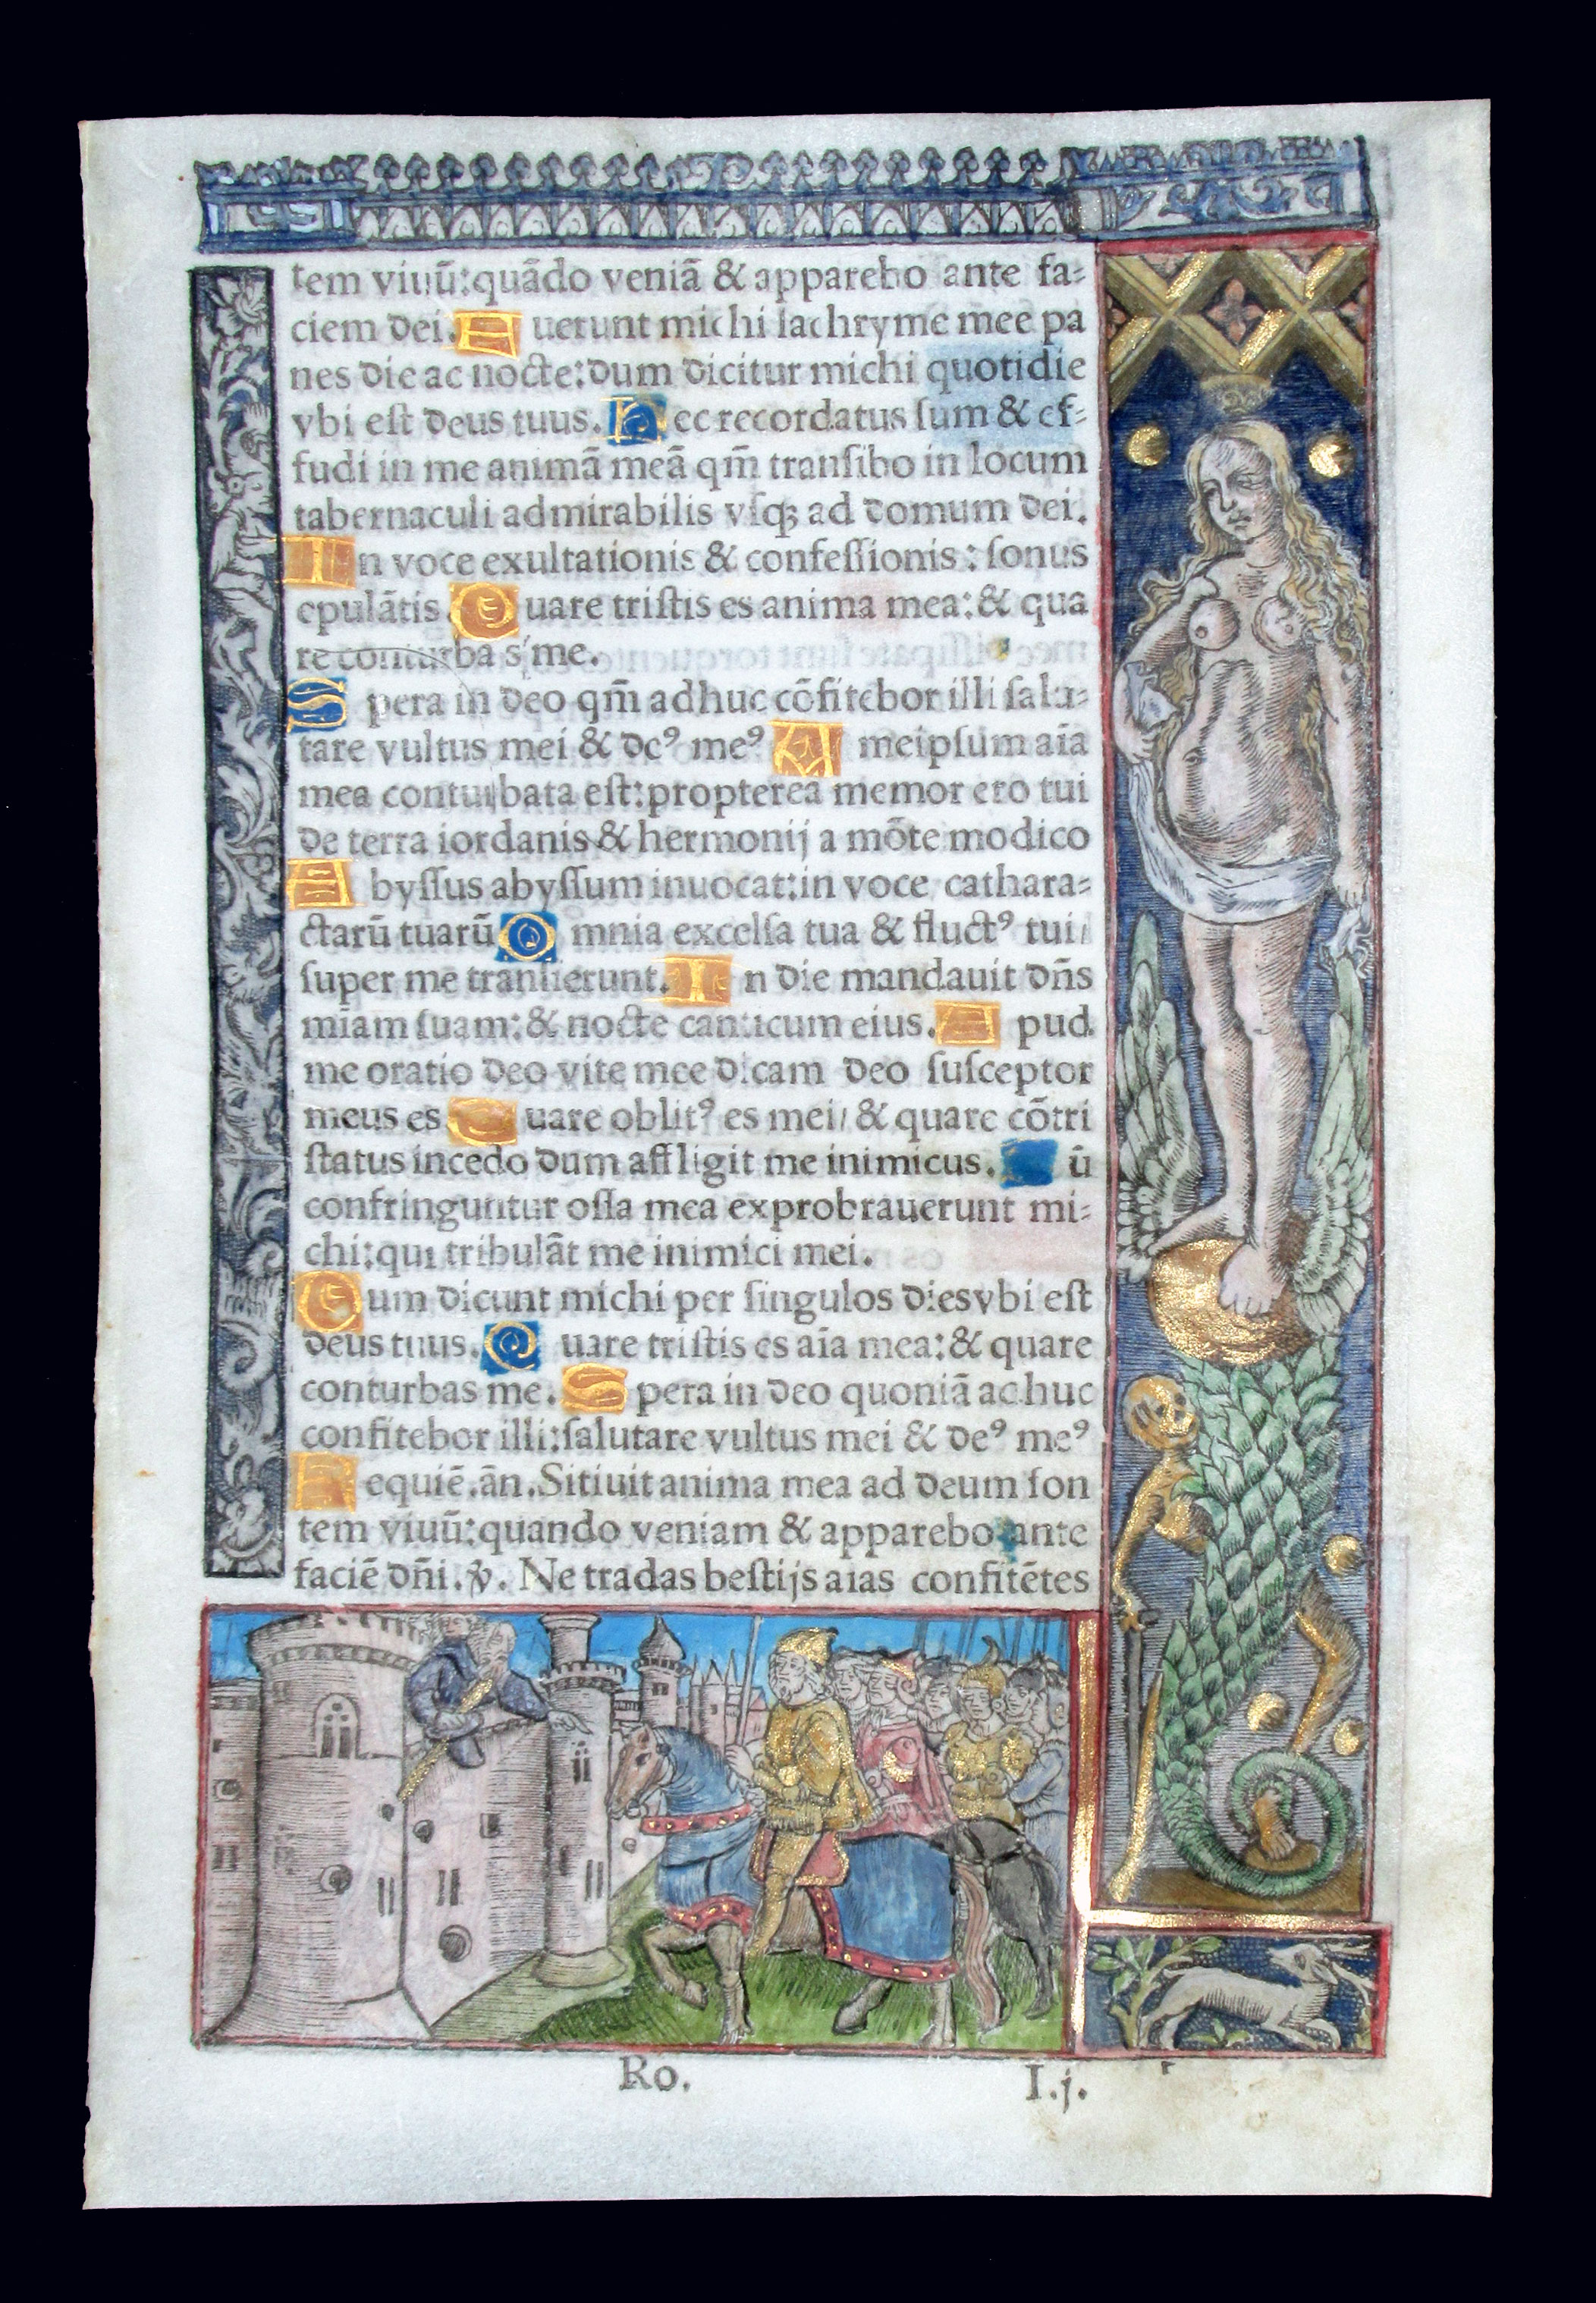 tem viuū:quādo veniā & apparebo ante fa-
ciem dei. Fuerunt michi lachryme mee pa
nes die ac nocte:dum dicitur michi quotidie
vbi est deus tuus. Hec recordatus sum & ef-
fudi in me animā meā qm̄ transibo in locum
tabernaculi admirabilis vsqꝫ ad domum dei.
In voce exultationis & confessionis: sonus
epulātis. Quare tristis es anima mea: & qua
re conturbas me.
Spera in deo qm̄ adhuc cōfitebor illi salu-
tare vultus mei & deꝰ meꝰ Ad meipsum aīa
mea conturbata est:propterea memor ero tui
de terra iordanis & hermonij a mōte modico
Abyssus abyssum inuocat:in voce cathara-
ctarū tuarū Omnia excelsa tua & fluctꝰ tui/
super me transierunt. In die mandauit dn̄s
mīam suam: & nocte canticum eius. Apud
me oratio deo vite mee dicam deo susceptor
meus es Quare oblitꝰ es mei/ & quare cōtri
status incedo dum affligit me inimicus. ū
confringuntur ossa mea exprobrauerunt mi-
chi:qui tribulāt me inimici mei.
Dum dicunt michi per singulos dies vbi est
deus tuus. Quare tristis es aīa mea: & quare
conturbas me. Spera in deo quoniā adhuc
confitebor illi:salutare vultus mei & deꝰ meꝰ
Requiē.ān. Sitiuit anima mea ad deum fon
tem viuū:quando veniam & apparebo ante
faciē dn̄i. ℣. Ne tradas bestijs aīas confitētes
Ro. I.j.